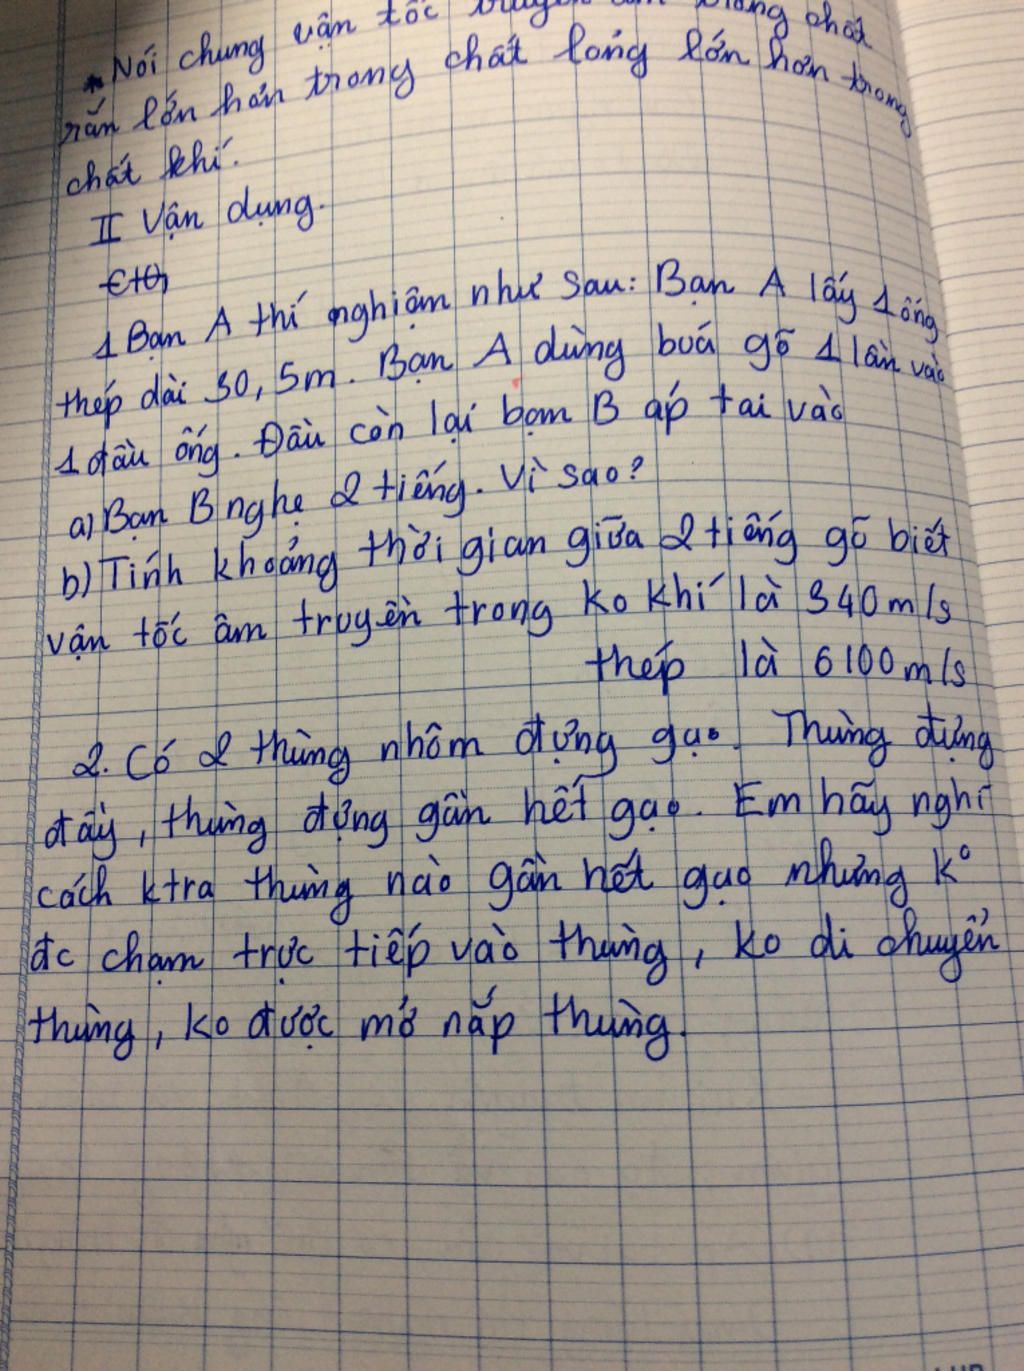 * Nói chung vận tốc truyền âm trong chất
rắn lớn hơn trong chất lỏng lớn hơn trong
chất khí.
II Vận dụng.
1 Bạn A thí nghiệm như sau: Bạn A lấy 1 ống
thép dài 30,5m. Bạn A dùng buá gõ 1 lần vào
1 đầu ống. Đầu còn lại bạn B áp tai vào
a) Bạn B nghe 2 tiếng. Vì sao?
b) Tính khoảng thời gian giữa 2 tiếng gõ biết
vận tốc âm truyền trong ko khí là 340 m/s
thép là 6100 m/s
2. Có 2 thùng nhôm đựng gạo. Thùng đựng
đầy, thùng đựng gần hết gạo. Em hãy nghĩ
cách ktra thùng nào gần hết gạo nhưng k°
đc chạm trực tiếp vào thùng, ko di chuyển
thùng, ko được mở nắp thùng.